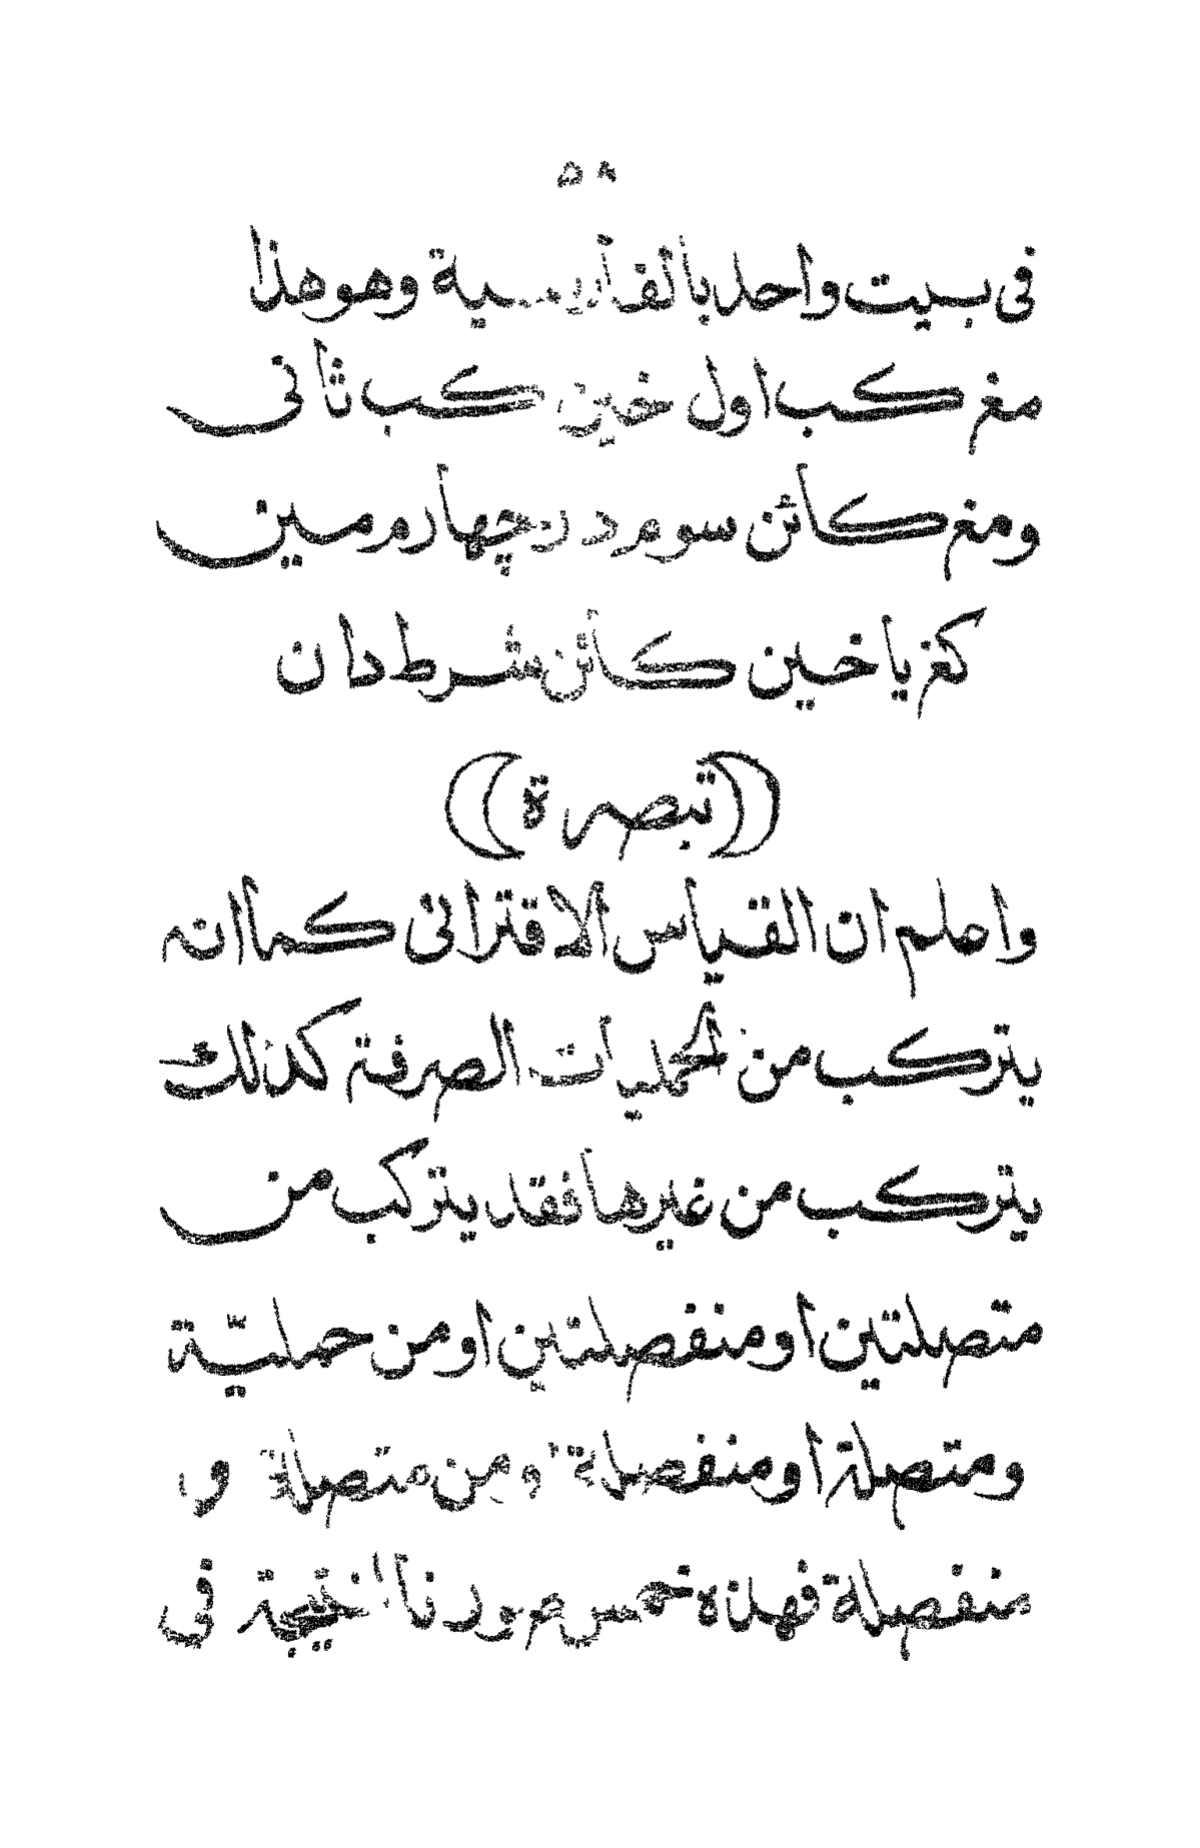 ٥٨
فى بيت واحد بالفارسية وهو هذا
مغ كب اول خين كب ثانى
ومغ كائن سوم در چهارم مين
كغ يا خين كائن شرط دان
((تبصرة))
واعلم ان القياس الاقترانى كما انه
يتركب من الحمليات الصرفة كذلك
يتركب من غيرها فقد يتركب من
متصلتين او منفصلتين او من حمليّة
ومتصلة او منفصلة ومن متصلة و
منفصلة فهذه خمس صور فالنتيجة فى